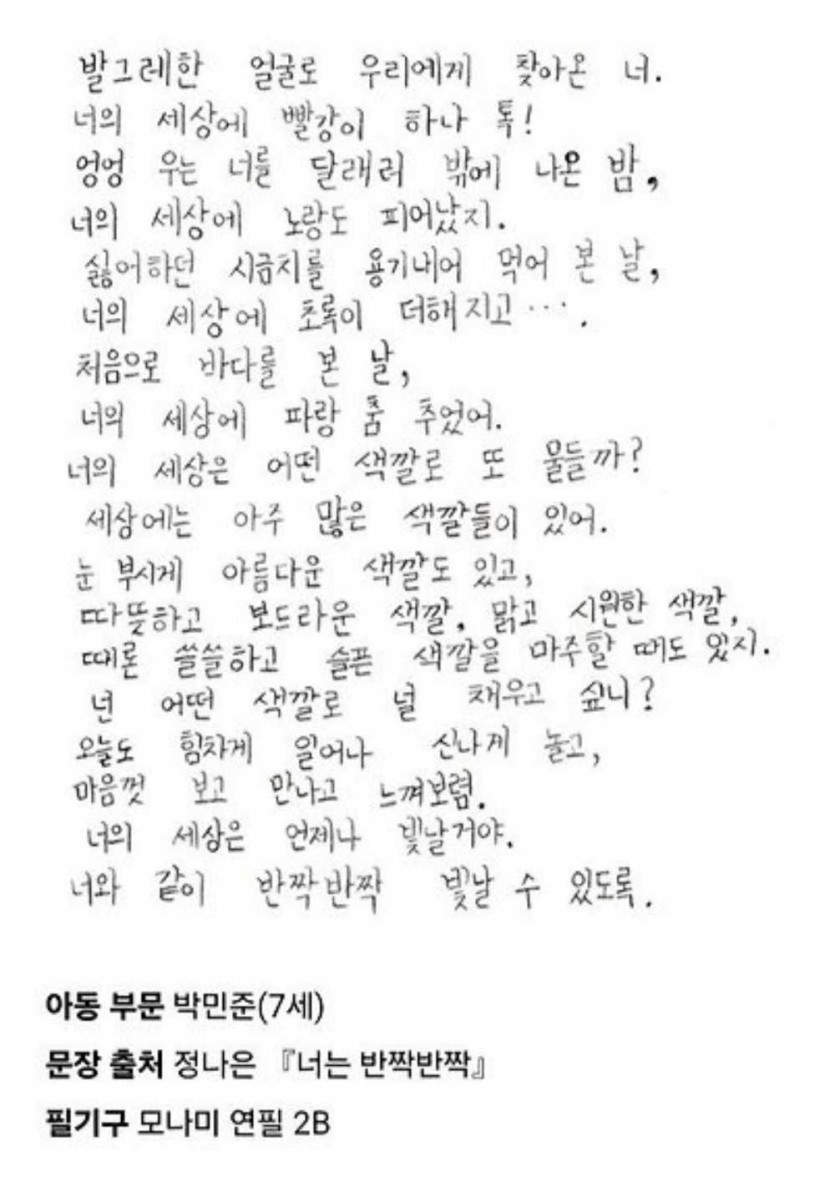 발그레한 얼굴로 우리에게 찾아온 너.
너의 세상에 빨강이 하나 톡!
엉엉 우는 너를 달래러 밖에 나온 밤,
너의 세상에 노랑도 피어났지.
싫어하던 시금치를 용기내어 먹어 본 날,
너의 세상에 초록이 더해지고….
처음으로 바다를 본 날,
너의 세상에 파랑 춤 추었어.
너의 세상은 어떤 색깔로 또 물들까?
세상에는 아주 많은 색깔들이 있어.
눈 부시게 아름다운 색깔도 있고,
따뜻하고 보드라운 색깔. 맑고 시원한 색깔,
때론 쓸쓸하고 슬픈 색깔을 마주할 때도 있지.
넌 어떤 색깔로 널 채우고 싶니?
오늘도 힘차게 일어나 신나게 놀고,
마음껏 보고 만나고 느껴보렴.
너의 세상은 언제나 빛날거야.
너와 같이 반짝반짝 빛날 수 있도록.
아동 부문 박민준(7세)
문장 출처 정나은 『너는 반짝반짝』
필기구 모나미 연필 2B